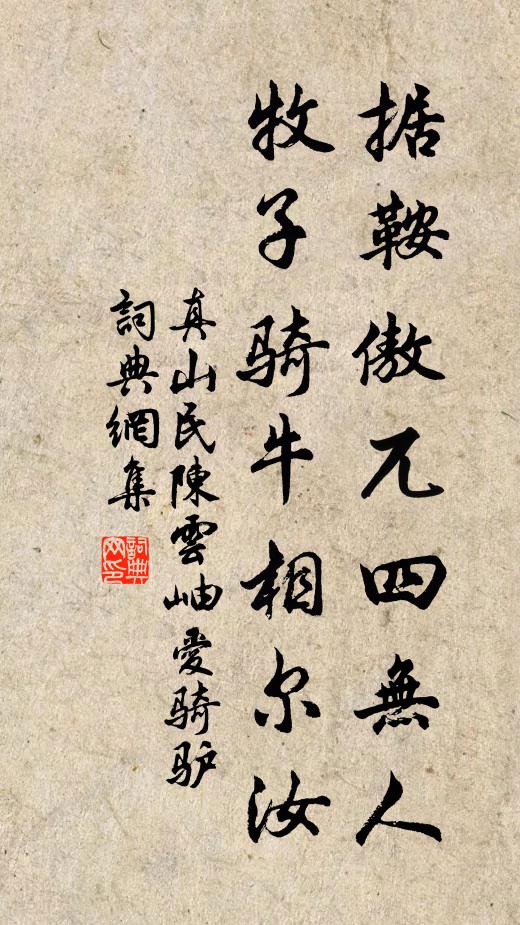 据鞍傲兀四無人
牧子骑牛相尔汝
真山民陳雲岫愛骑驴
詞典網集
詞典网印